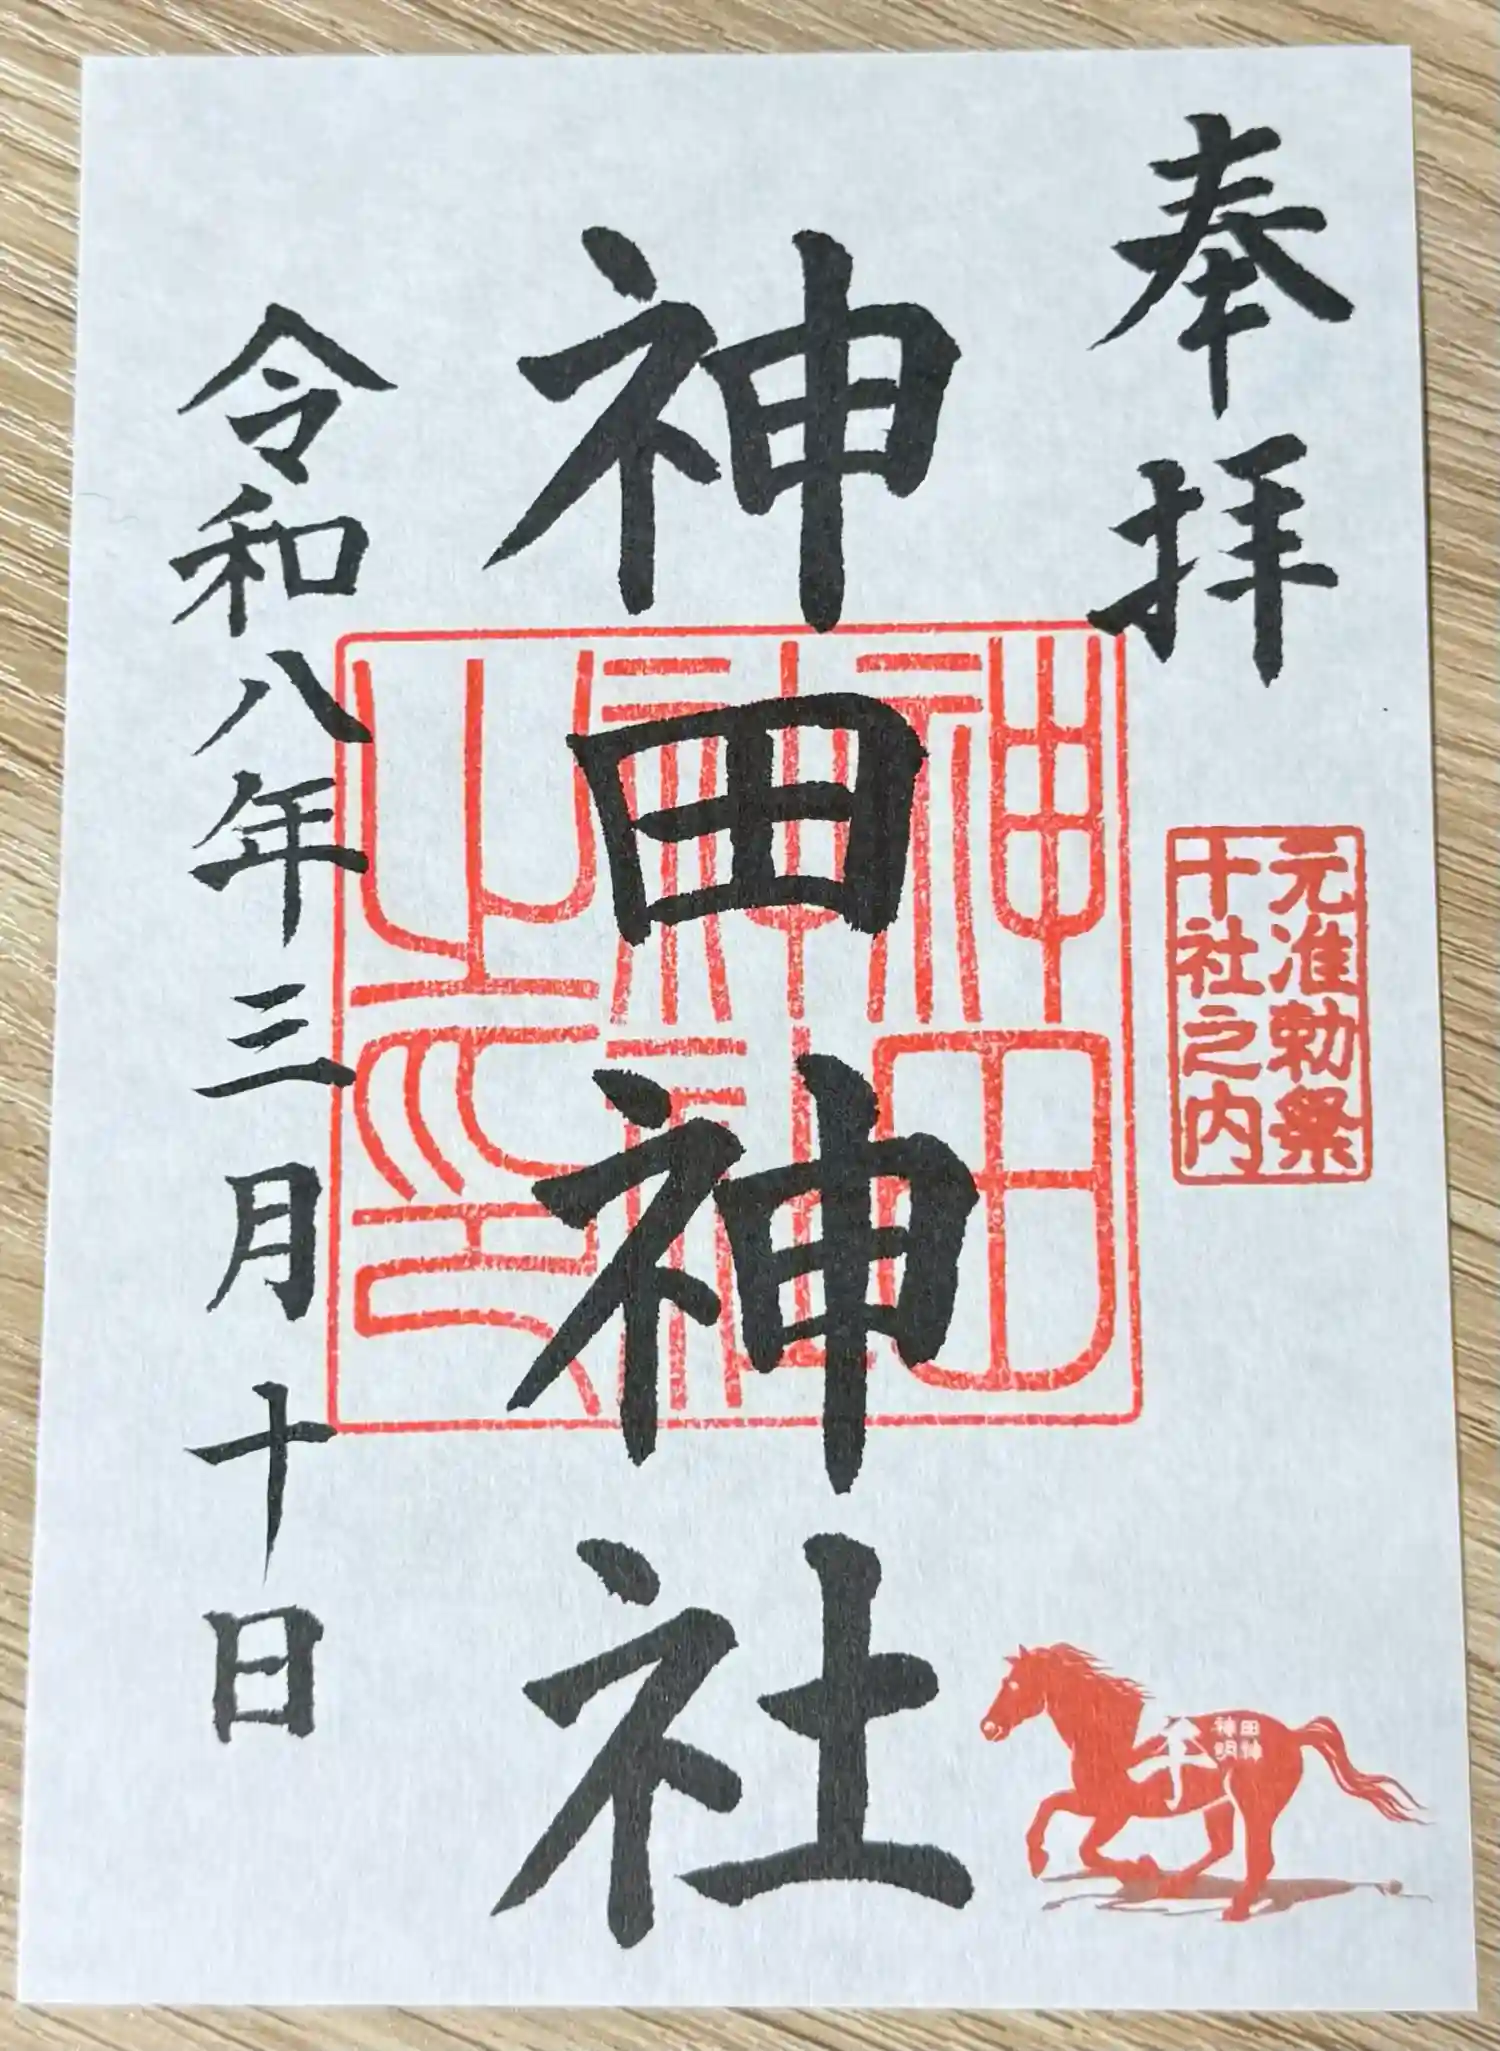 奉拝
元准勅祭
十社之内
神田神社
神田神社之印
午
神田
神明
令和八年三月十日